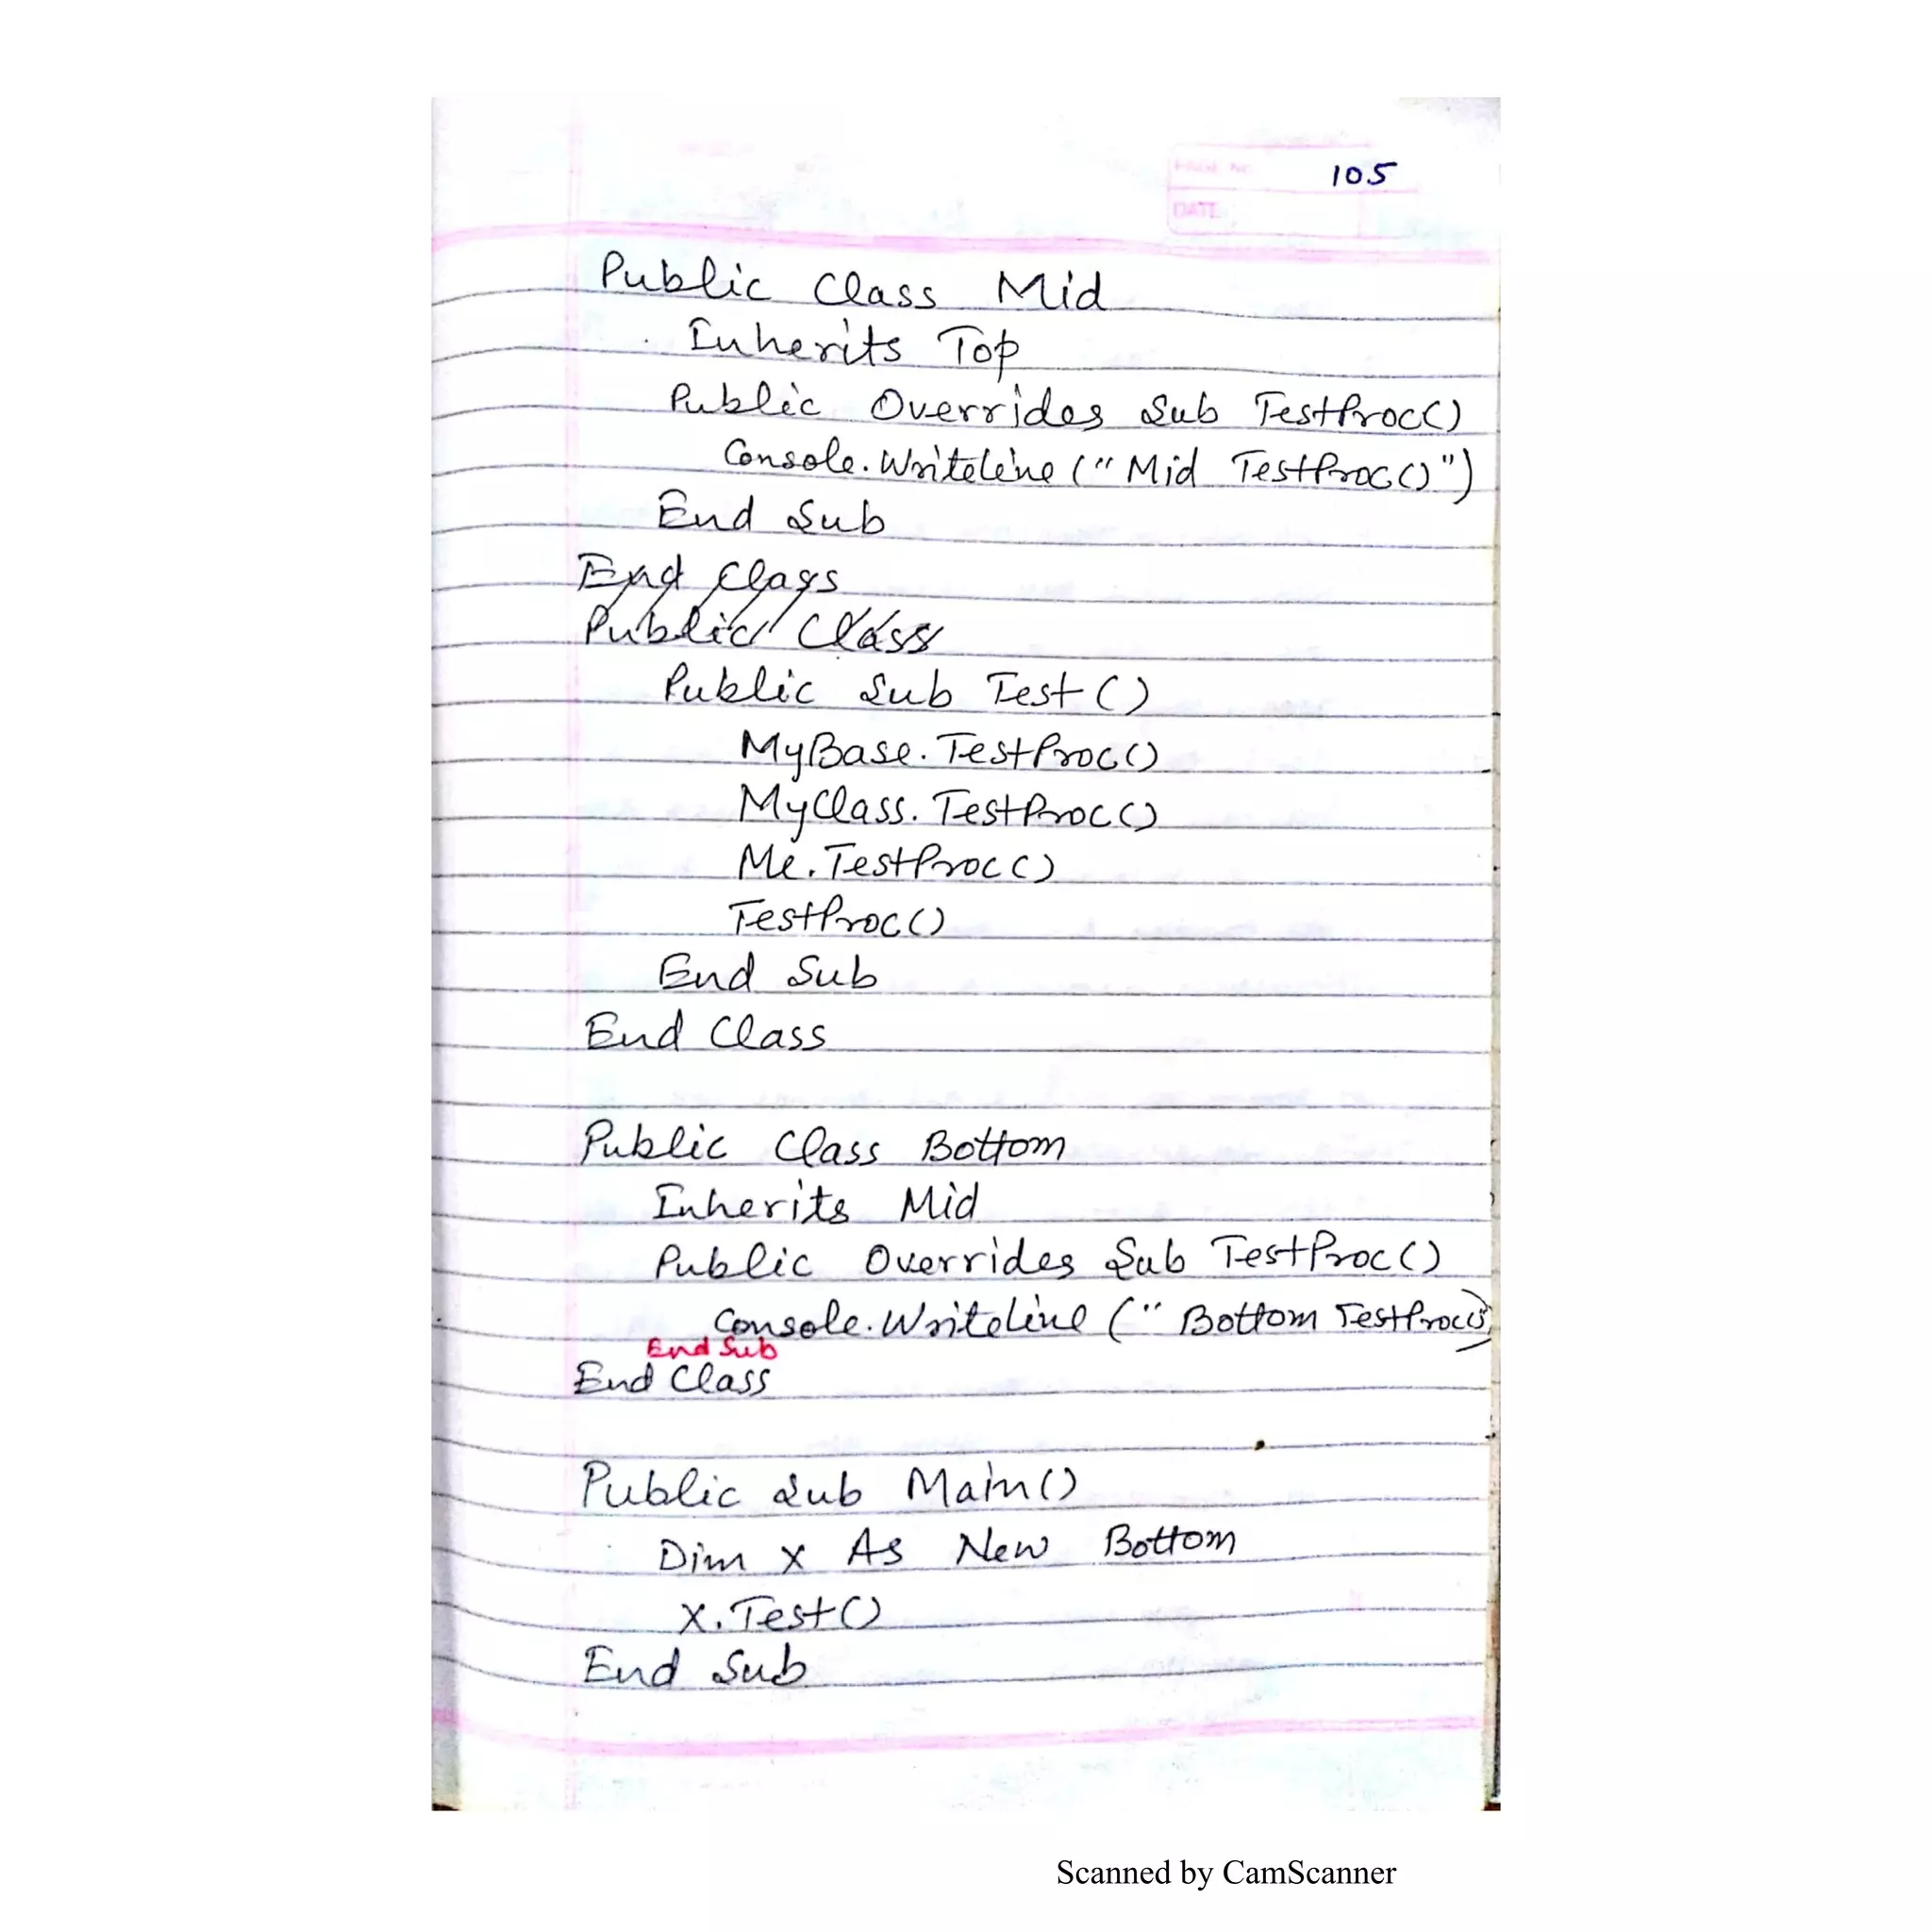 PAGE NO. 105
DATE
Public Class Mid
Inherits Top
Public Overrides Sub TestProc()
Console.Writeline("Mid TestProc()")
End Sub
End Class
Public Class
Public Sub Test()
MyBase.TestProc()
MyClass.TestProc()
Me.TestProc()
TestProc()
End Sub
End Class
Public Class Bottom
Inherits Mid
Public Overrides Sub TestProc()
Console.Writeline("Bottom TestProc()")
End Sub
End Class
Public Sub Main()
Dim X As New Bottom
X.Test()
End Sub
Scanned by CamScanner